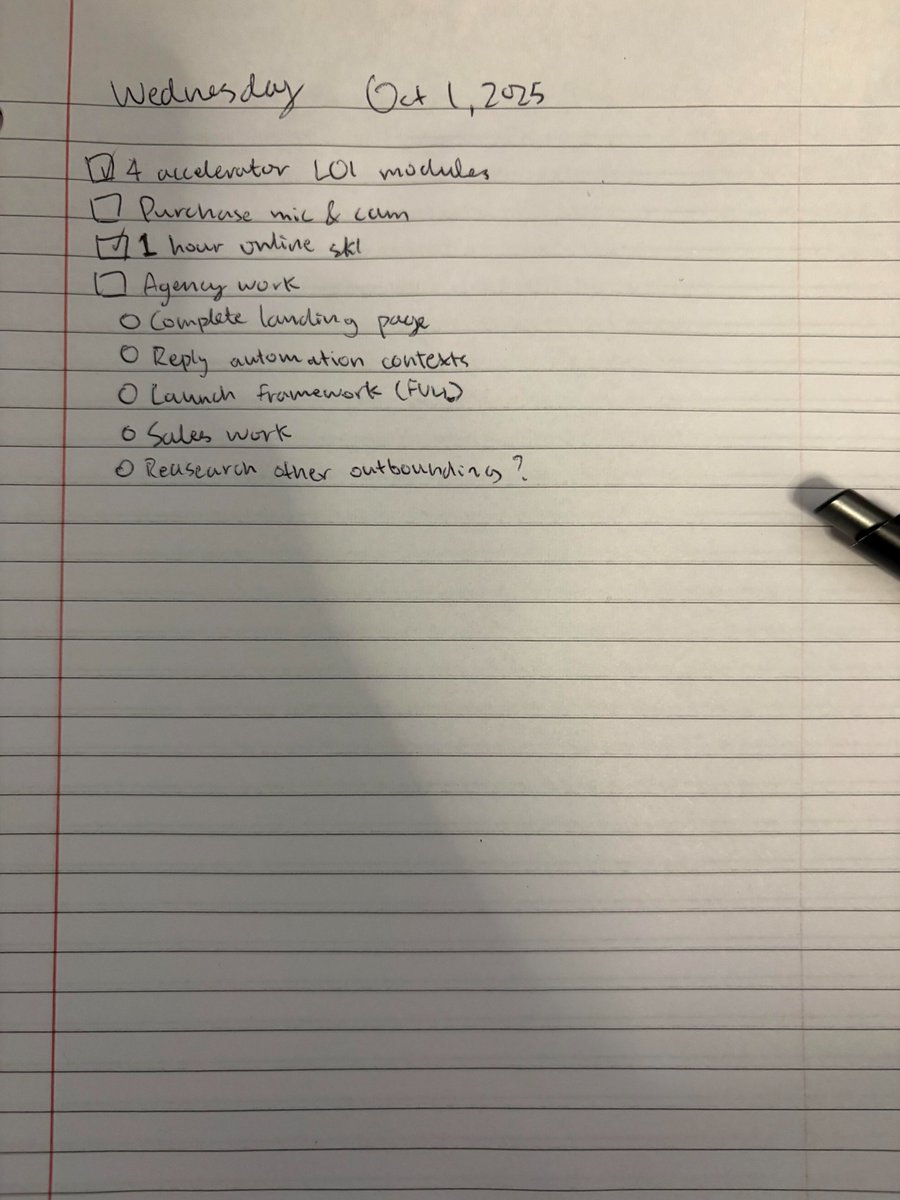 Wednesday Oct 1, 2025
☑ 4 accelerator LOI modules
☐ Purchase mic & cam
☑ 1 hour online skl
☐ Agency work
○ Complete landing page
○ Reply automation contexts
○ Launch framework (FULL)
○ Sales work
○ Reasearch other outbounding?